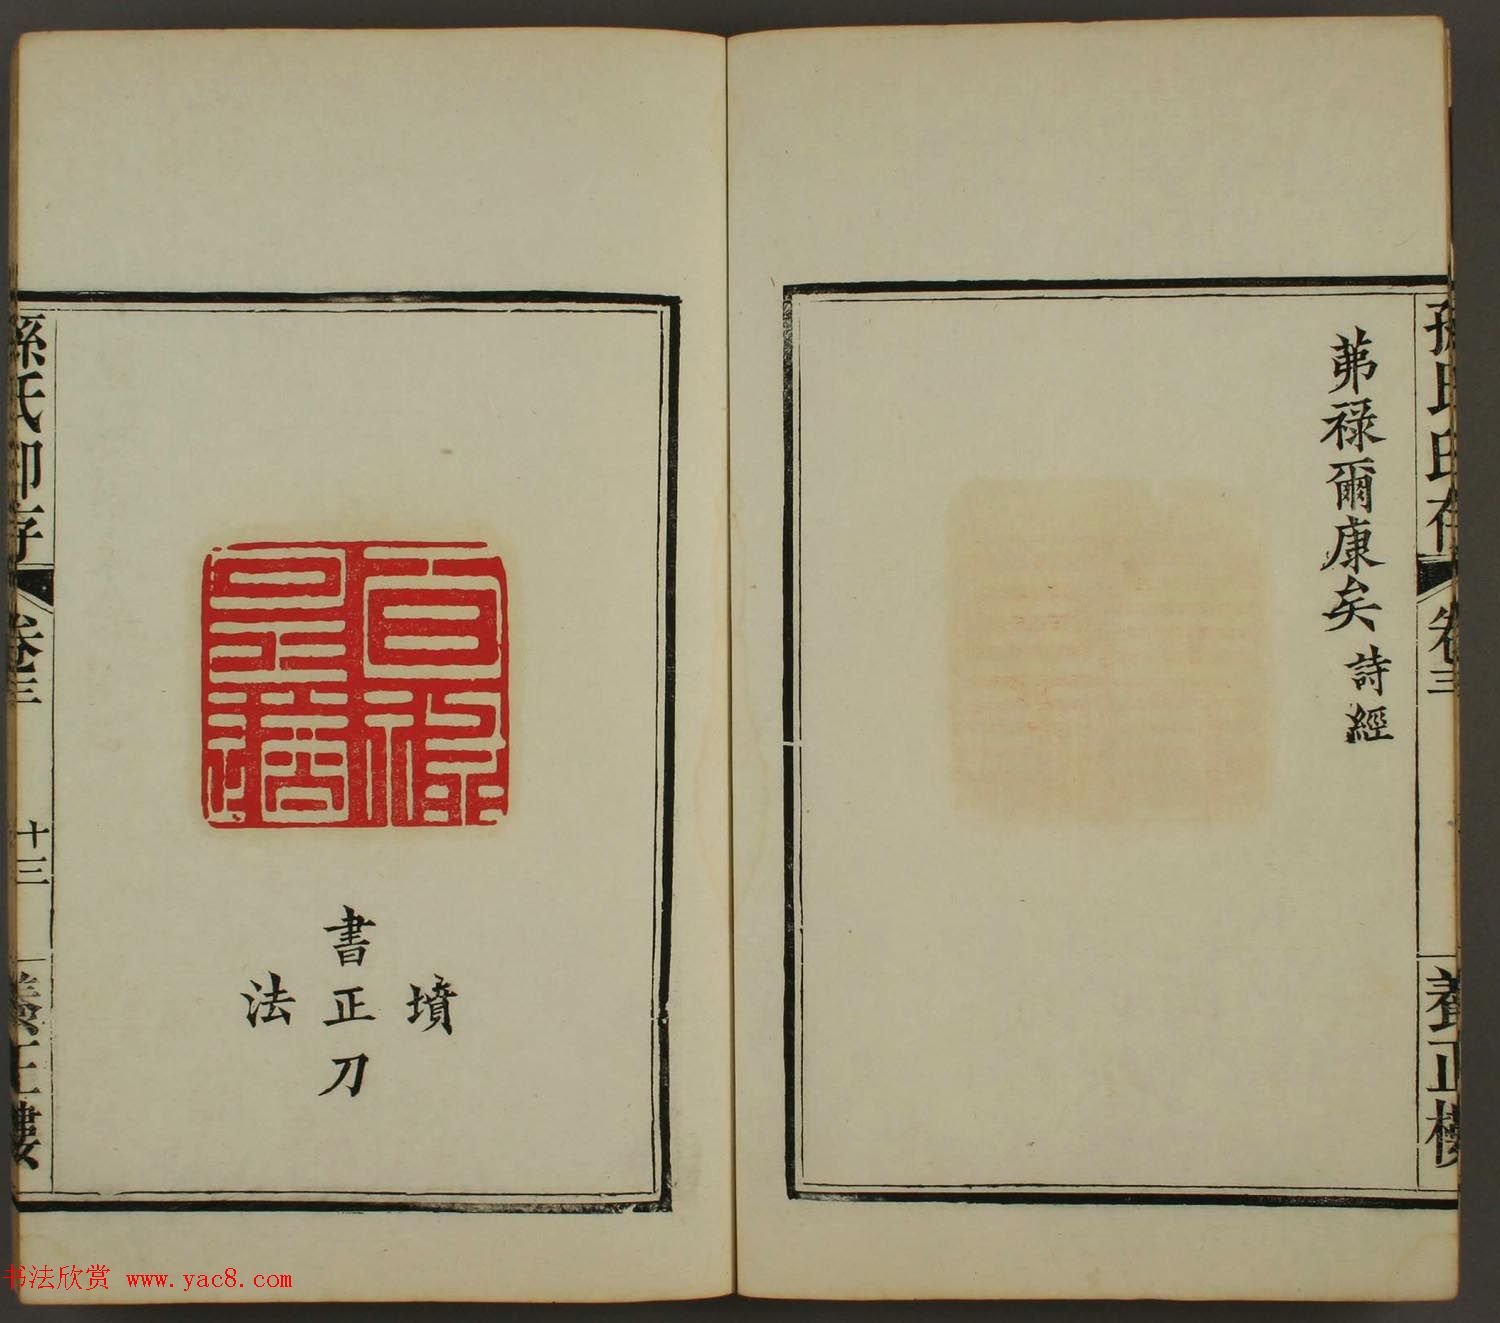 孫氏印存 卷三 養正樓
茀祿爾康矣 詩經
百祿
是遒
墳
書正刀
法
孫氏印存 卷三 十三 養正樓
书法欣赏 www.yac8.com